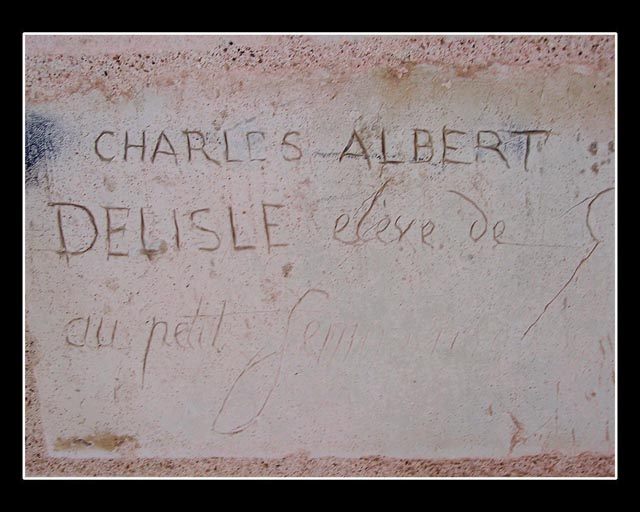 CHARLES ALBERT
DELISLE elève de 5
au petit